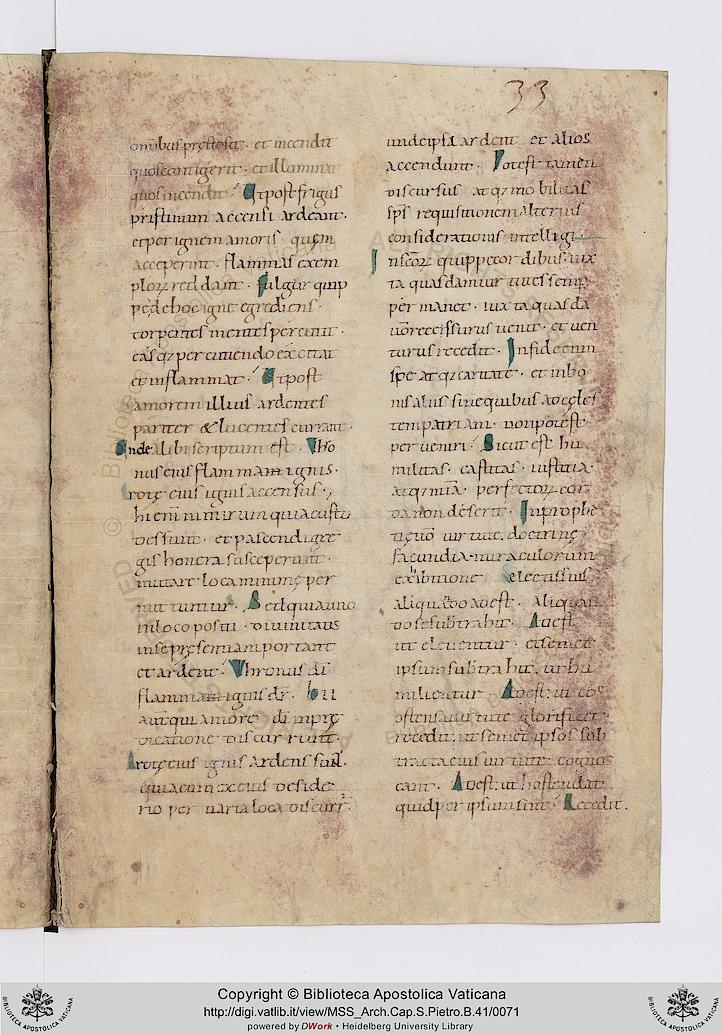 33
omibus prestosit · et incendit
quos contigerit · et illuminat
quos incendit · Ut post frigus
pristinum accensi ardeant ·
et per ignem amoris quem
acceperint · flammas exem
plorꝝ reddant · Fulgur quip
pe de hoc igne egrediens ·
torpentes mentes percutit ·
eas q; percutiendo excitat
et inflammat · Ut post
amorem illius ardentes
pariter & lucentes currant ·
Unde alibi scriptum est · Thro
nus eius flammam ignis ·
rotę eius ignis accensus ·
hi eni nimirum qui a custo
dessunt · et pascendi gre
gis honera susceperunt ·
mutare loca minime per
mittuntur · Sed quia uno
in loco positi · diuinitatis
in se presentiam portant
et ardent · Thronus di
flammam ignis dr · hii
aut qui amore di in prę
dicatione discurrunt ·
Rotę eius ignis ardens sunt ·
quia cum ex eius deside
rio per uaria loca discurr
unde ipsi ardent et alios
accendunt · Potest tamen
discursus atq; mobilitas
sps requisitionem alterius
considerationis intelligi ·
In scorꝝ quippe cordibus iux
ta quasdam uirtutes semp
permanet · iuxta quasda
uero recessurus uenit · et uen
turus recedit · In fide enim
spe atq; caritate · et in bo
nis aliis sine quibus ad cęles
tem patriam non potest
perueniri · Sicut est hu
militas · castitas · iustitia ·
atq; mia · perfectorꝝ cor
da non deserit · In prophe
tię uero uirtute · doctrinę
facundia · miraculorum
exhibitione · Electis suis
aliquando adest · Aliquan
do se subtrahit · Adest
ut eleuentur · et semet
ipsum subtrahit · ut hu
milientur · Adest ut eos
ostensa uirtute glorificet ·
recedit · ut semet ipsos sub
tracta eius uirtute cognos
cant · Adest · ut hostendat
quid per ipsum sint · Recedit ·
Copyright © Biblioteca Apostolica Vaticana
http://digi.vatlib.it/view/MSS_Arch.Cap.S.Pietro.B.41/0071
powered by DWork • Heidelberg University Library